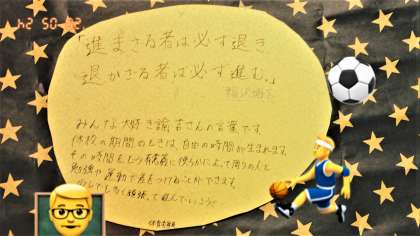 「進まざる者は必ず退き
退かざる者は必ず進む。」
福沢諭吉
みんな大好き諭吉さんの言葉です。
休校の期間のときは、自由の時間が生まれます。
その時間をどう有意義に使うかによって、周りの人と
勉強や運動で差をつけることができます。
少しでも多く頑張って遊んでいこうぜ